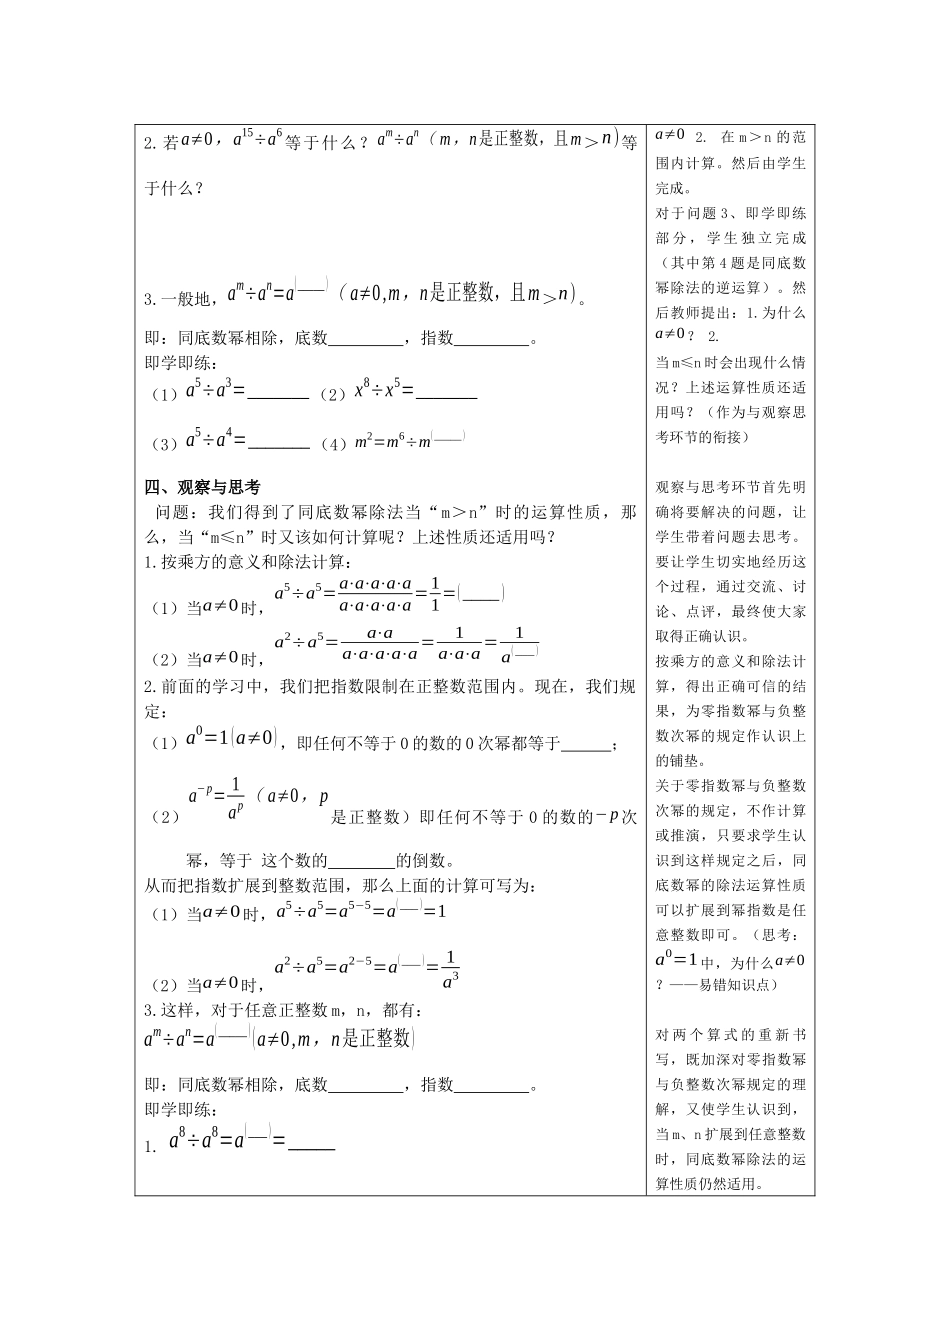 2.若a≠0，a¹⁵÷a⁶等于什么？aᵐ÷aⁿ（m，n是正整数，且m＞n)等
于什么？
3.一般地，aᵐ÷aⁿ=a⁽——⁾（a≠0,m，n是正整数，且m＞n)。
即：同底数幂相除，底数_________，指数_________。
即学即练：
（1）a⁵÷a³=_______（2）x⁸÷x⁵=_______
（3）a⁵÷a⁴=_______（4）m²=m⁶÷m⁽——⁾
四、观察与思考
问题：我们得到了同底数幂除法当“m＞n”时的运算性质，那
么，当“m≤n”时又该如何计算呢？上述性质还适用吗？
1.按乘方的意义和除法计算：
（1）当a≠0时，a⁵÷a⁵=a·a·a·a·a/a·a·a·a·a=1/1=(____)
（2）当a≠0时，a²÷a⁵=a·a/a·a·a·a·a=1/a·a·a=1/a⁽—⁾
2.前面的学习中，我们把指数限制在正整数范围内。现在，我们规
定：
（1）a⁰=1(a≠0)，即任何不等于0的数的0次幂都等于______；
（2）a⁻ᵖ=1/aᵖ（a≠0，p是正整数）即任何不等于0的数的−p次
幂，等于 这个数的________的倒数。
从而把指数扩展到整数范围，那么上面的计算可写为：
（1）当a≠0时，a⁵÷a⁵=a⁵⁻⁵=a⁽—⁾=1
（2）当a≠0时，a²÷a⁵=a²⁻⁵=a⁽—⁾=1/a³
3.这样，对于任意正整数m，n，都有：
aᵐ÷aⁿ=a⁽——⁾(a≠0,m，n是正整数)
即：同底数幂相除，底数_________，指数_________。
即学即练：
1. a⁸÷a⁸=a⁽—⁾=_____
a≠0 2. 在m＞n的范
围内计算。然后由学生
完成。
对于问题3、即学即练
部分，学生独立完成
（其中第4题是同底数
幂除法的逆运算）。然
后教师提出：1.为什么
a≠0？ 2.
当m≤n时会出现什么情
况？上述运算性质还适
用吗？（作为与观察思
考环节的衔接）
观察与思考环节首先明
确将要解决的问题，让
学生带着问题去思考。
要让学生切实地经历这
个过程，通过交流、讨
论、点评，最终使大家
取得正确认识。
按乘方的意义和除法计
算，得出正确可信的结
果，为零指数幂与负整
数次幂的规定作认识上
的铺垫。
关于零指数幂与负整数
次幂的规定，不作计算
或推演，只要求学生认
识到这样规定之后，同
底数幂的除法运算性质
可以扩展到幂指数是任
意整数即可。（思考：
a⁰=1中，为什么a≠0
？——易错知识点）
对两个算式的重新书
写，既加深对零指数幂
与负整数次幂规定的理
解，又使学生认识到，
当m、n扩展到任意整数
时，同底数幂除法的运
算性质仍然适用。